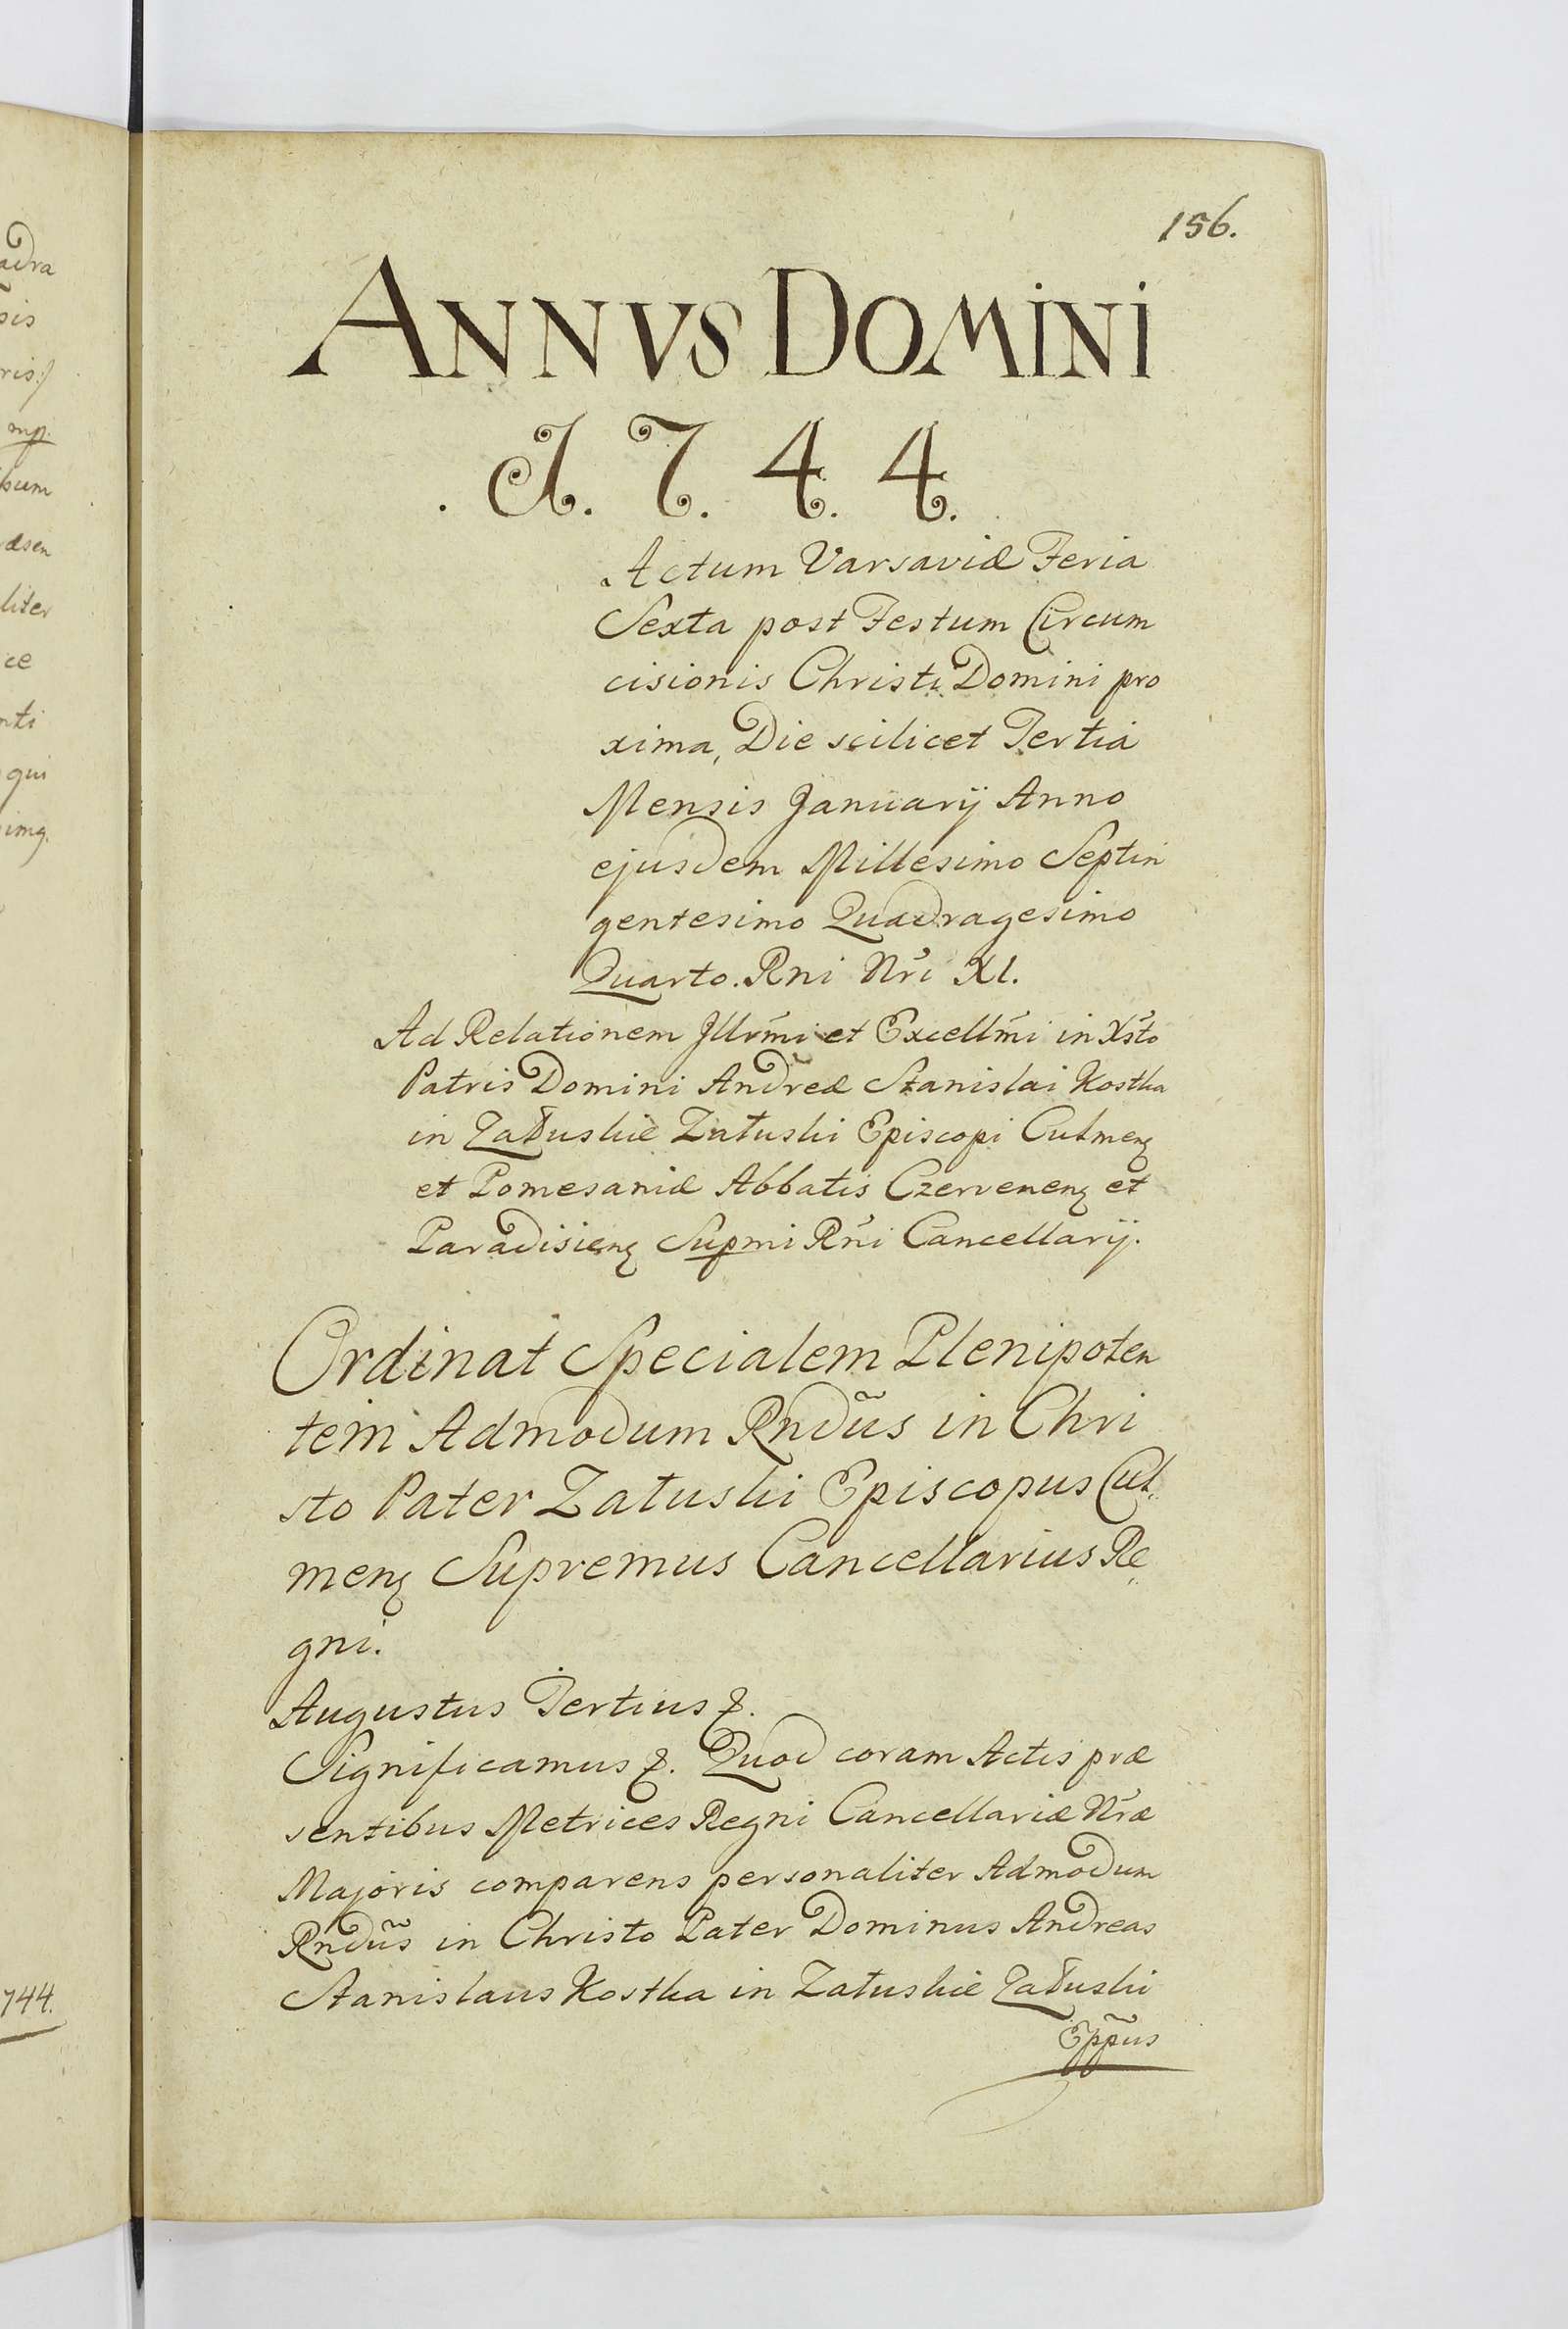 adra
sis
ris:/
mp.
bum
dsen
liter
ce
nti
qui
img.
744.
156.
ANNVS DOMINI
. 1. 7. 4. 4.
Actum Varsaviæ Feria
Sexta post Festum Circum
cisionis Christi Domini pro
xima, Die scilicet Tertia
Mensis Januarij Anno
ejusdem Millesimo Septin
gentesimo Quadragesimo
Quarto. Rni Nri XI.
Ad Relationem Jllrmi et Excellmi in Xsto
Patris Domini Andreæ Stanislai Kostka
in Załuskie Załuski Episcopi Culmenȝ
et Pomesaniæ Abbatis Czervenenȝ et
Paradisienȝ Supmi Rni Cancellarij.
Ordinat Specialem Plenipoten
tem Admodum Rndũs in Chri
sto Pater Załuski Episcopus Cul„
menȝ Supremus Cancellarius Re„
gni.
Augustus Tertius &.
Significamus &. Quod coram Actis præ
sentibus Metrices Regni Cancellariæ Nræ
Majoris comparens personaliter Admodum
Rndũs in Christo Pater Dominus Andreas
Stanislaus Kostka in Załuskie Załuski
Epp̃us